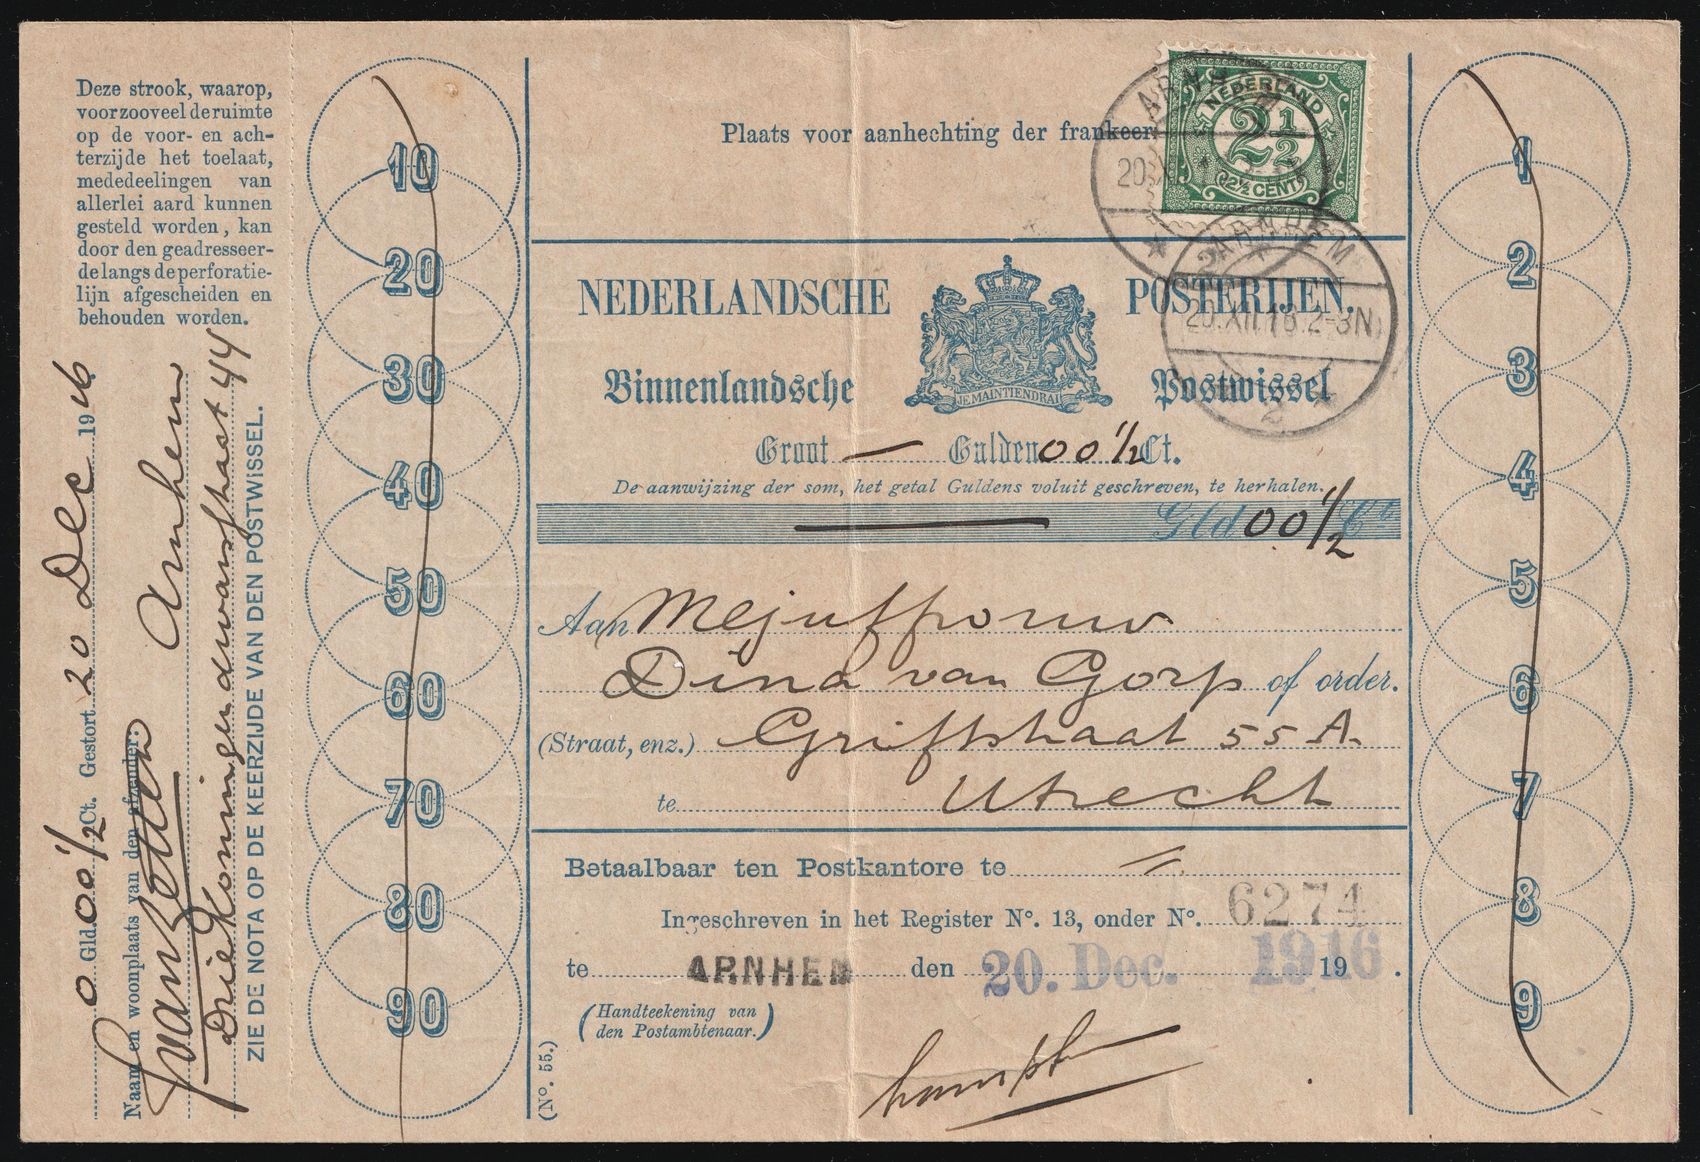 Deze strook, waarop,
voorzooveel de ruimte
op de voor- en ach-
terzijde het toelaat,
mededeelingen van
allerlei aard kunnen
gesteld worden, kan
door den geadresseer-
de langs de perforatie-
lijn afgescheiden en
behouden worden.
0 Gld. 00 1/2 Ct. Gestort 20 Dec 1916
Naam en woonplaats van den afzender:
Arnhem
Driekoningendwarsstraat 44
ZIE DE NOTA OP DE KEERZIJDE VAN DEN POSTWISSEL.
10
20
30
40
50
60
70
80
90
Plaats voor aanhechting der frankeer
NEDERLAND
2 1/2
2 1/2 CENT
ARNHEM
20.XII.16.2-3N
2
NEDERLANDSCHE POSTERIJEN.
Binnenlandsche Postwissel
JE MAINTIENDRAI
Groot — Gulden 00 1/2 Ct.
De aanwijzing der som, het getal Guldens voluit geschreven, te herhalen.
Gld 00 1/2 Ct
Aan Mejuffrouw
Dina van Gorp of order.
(Straat, enz.) Griftstraat 55 A.
te Utrecht
Betaalbaar ten Postkantore te "
Ingeschreven in het Register No. 13, onder No. 6274
te ARNHEM den 20. Dec. 1916 19 .
(Handteekening van
den Postambtenaar.)
(No. 55.)
1
2
3
4
5
6
7
8
9